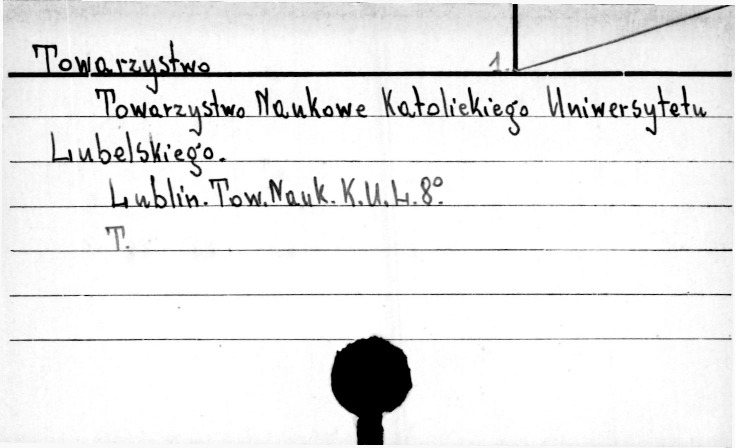 Towarzystwo 1.
Towarzystwo Naukowe Katolickiego Uniwersytetu
Lubelskiego.
Lublin. Tow. Nauk. K.U.L. 8º.
T.